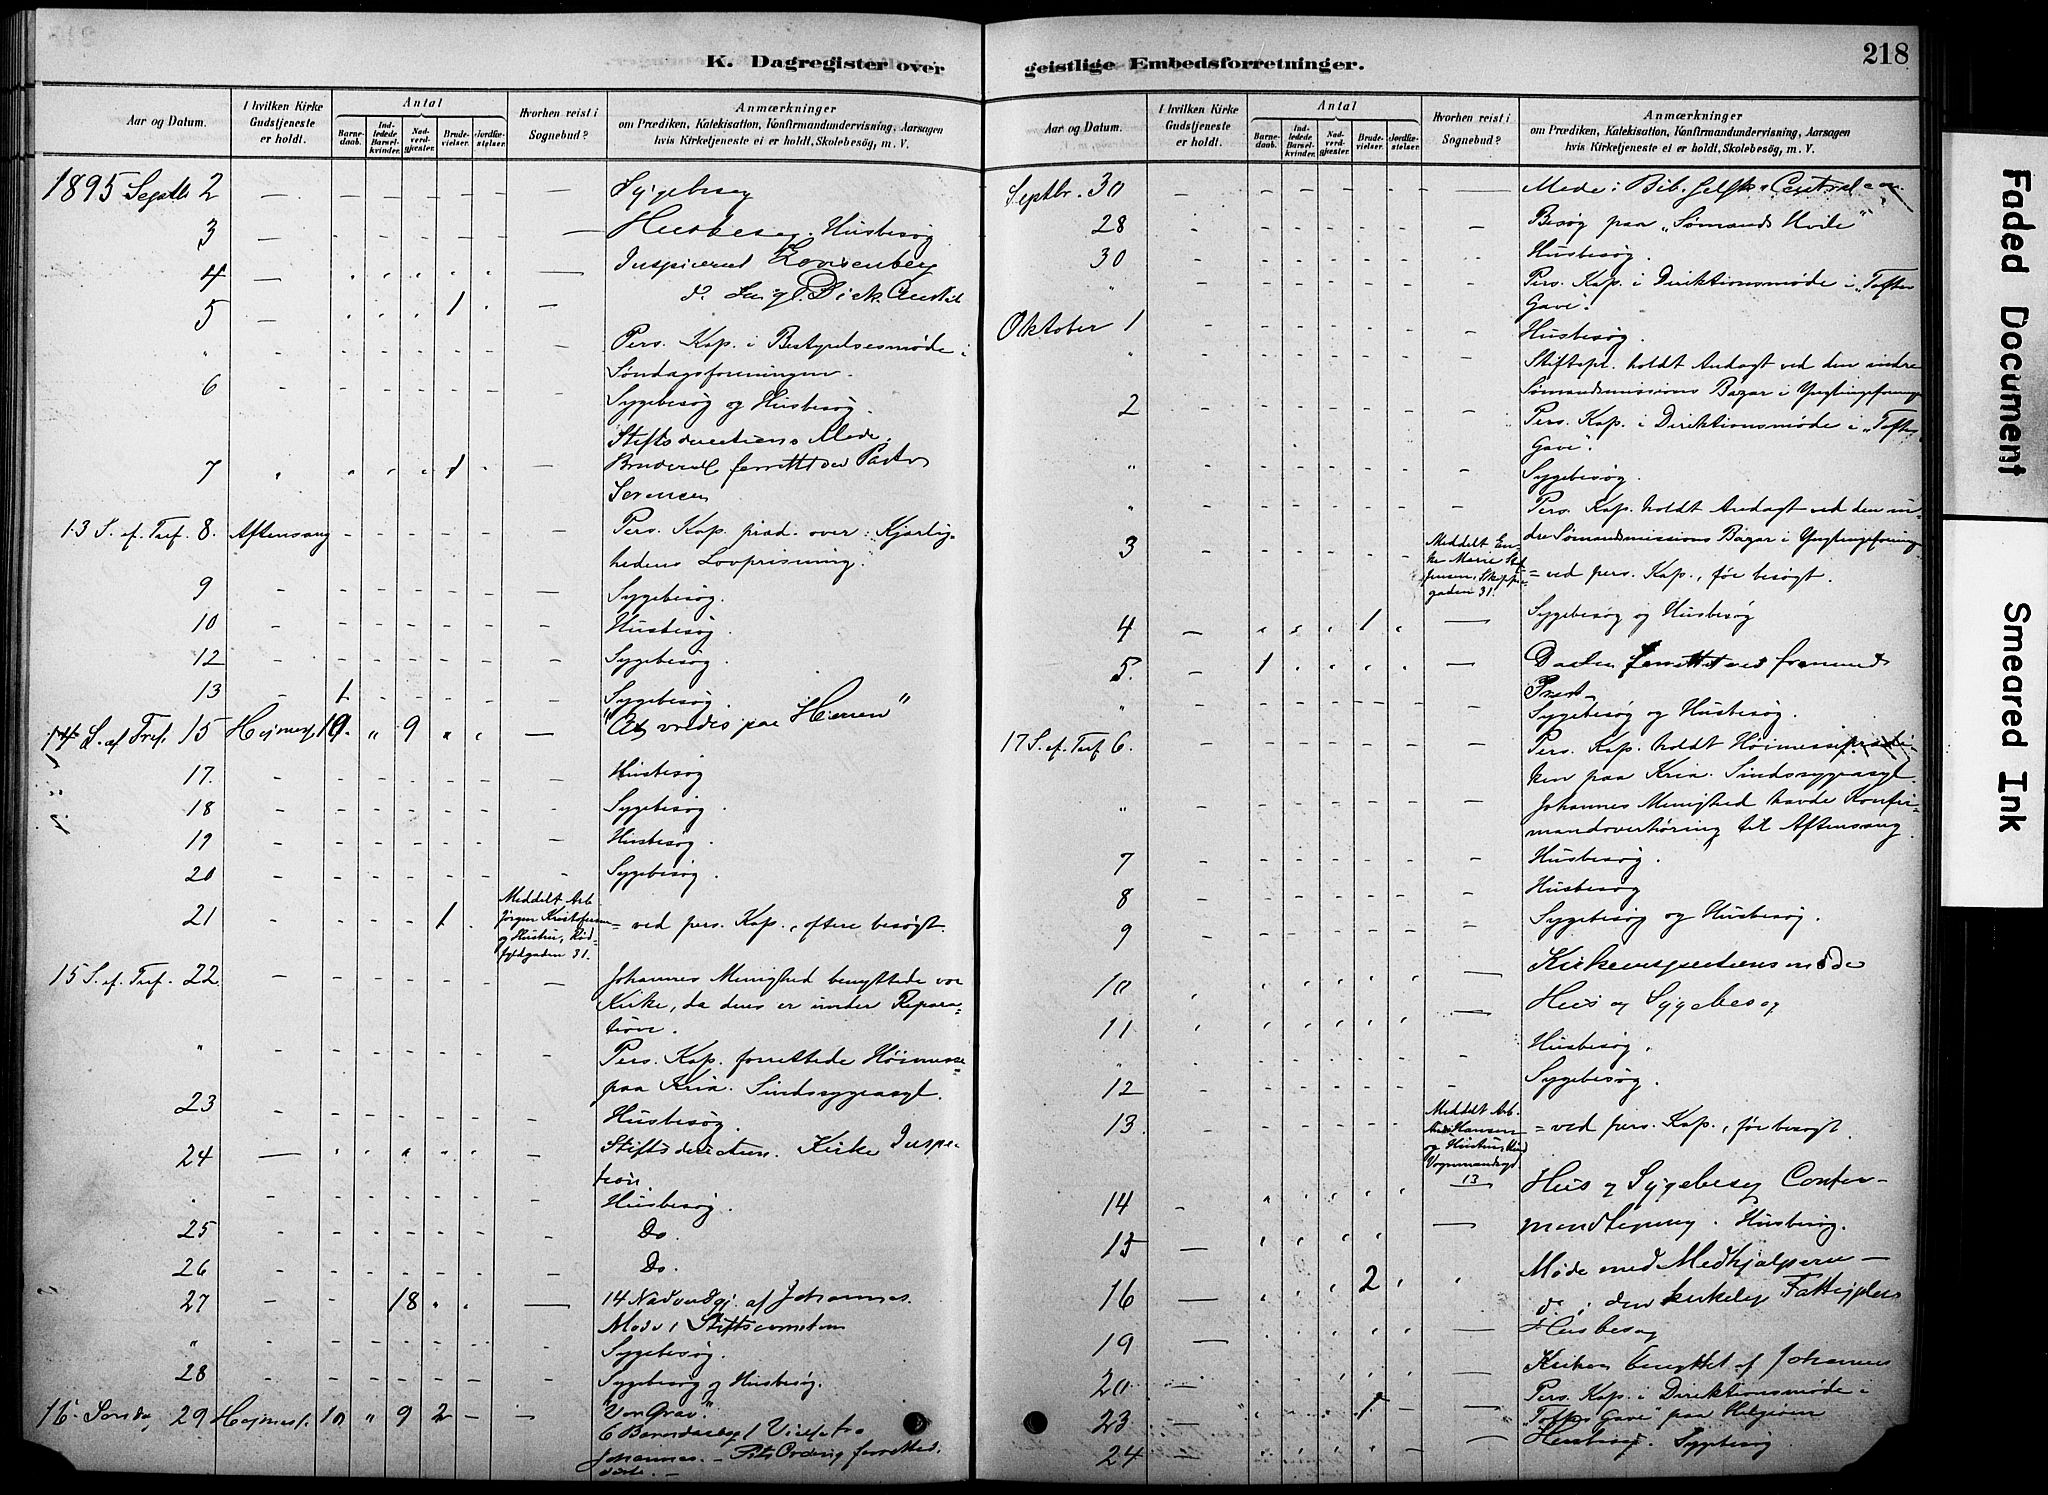 218
K. Dagregister over
geistlige Embedsforretninger.
Aar og Datum.
I hvilken Kirke Gudstjeneste er holdt.
Antal
Barnedaab.
Indledede Barselkvinder.
Nadverdgjester.
Brudevielser.
Jordfæstelser.
Hvorhen reist i Sognebud?
Anmærkninger
om Prædiken, Katekisation, Konfirmandundervisning, Aarsagen
hvis Kirketjeneste ei er holdt, Skolebesøg, m. V.
1895 Septbr 2 Sygebesøg
3 Husbesøg
4 Inspiceret
5 1
" Pers. Kap. i Bestyrelsesmøde i
Søndagsforeningen.
6 Sygebesøg og Husbesøg.
Stiftsdirections Møde.
7 1 Brudeviel. forrettet ved Pastor
Sørensen
13 S. ef. Tref. 8. Aftensang Pers. Kap. præd. over: Kjærlig-
hedens Lovprisning.
9 Sygebesøg.
10 Husbesøg.
12 Sygebesøg.
13 1 Sygebesøg.
14 S. ef. Tref. 15 Højmesse 19. " 9 " "At vredes paa Herren"
17. Husbesøg
18 Sygebesøg.
19 Husbesøg.
20 Sygebesøg.
21 1 Meddelt Arb.
Jørgen Kristofersen
og Hustru, Rød-
fyldgaden 31.
= ved pers. Kap., oftere besøgt.
15 S. ef. Tref. 22 Johannes Menighed benyttede vor
Kirke, da deres er under Repara-
tion.
" Pers. Kap. forrettede Høimesse
paa Kria. Sindssygeasyl.
23 Husbesøg.
24 Stiftsdirection. Kirke Inspec-
tion
Husbesøg.
25 Do.
26 Do.
27 18 14 Nadverdgj. af Johannes.
Møde i
" Sygebesøg.
28 Sygebesøg og Husbesøg.
16. Søndag 29 Højmess. 10 " 9 2 "Von Grav."
6 Barnedaab 1 Vielse fra
Johannes.
Aar og Datum.
I hvilken Kirke Gudstjeneste er holdt.
Antal
Barnedaab.
Indledede Barselkvinder.
Nadverdgjester.
Brudevielser.
Jordfæstelser.
Hvorhen reist i Sognebud?
Anmærkninger
om Prædiken, Katekisation, Konfirmandundervisning, Aarsagen
hvis Kirketjeneste ei er holdt, Skolebesøg, m. V.
Septbr. 30 Møde i Bib. Selsk.
28 Besøg paa "Sømands Hvile"
30 Husbesøg.
" Pers. Kap. i Direktionsmøde i "Toftes
Gave".
Oktober 1 Husbesøg.
" Stiftspr. holdt Andagt ved den indre
Sømandsmissions Bazar i Ynglingeforening
2 Pers. Kap. i Direktionsmøde i "Toftes
Gave".
" Sygebesøg.
" Pers. Kap. holdt Andagt ved den in-
dre Sømandsmissions Bazar i Ynglingeforening
3 Meddelt En-
ke Marie
gaden 31.
= ved pers. Kap., før besøgt.
4 1 Sygebesøg og Husbesøg
5. 1 Daaben forrettet ved fremmed
Prest
" Sygebesøg og Husbesøg.
17 S. ef. Tref 6. Pers. Kap. holdt Høimesseprædi-
ken paa Kria. Sindssygeasyl.
" Johannes Menighed havde Konfir-
mandoverhøring til Aftensang.
7 Husbesøg.
8 Husbesøg
9 Sygebesøg og Husbesøg.
10 Kirkeinspectionsmøde
11 Hus og Sygebesøg
" Husbesøg.
12 Sygebesøg.
13 Meddelt Arb.
Hansen
og Hustru,
Vognmandsgd.
13
= ved pers. Kap., før besøgt.
14 Hus og Sygebesøg Confir-
mandtegning. Husbesøg.
15 Møde med Medhjælperne
16 2 do i den kirkelig Fattigpleie
19 Husbesøg
20 Kirken benyttet af Johannes
23 1 Pers. Kap. i Direktionsmøde i
"Toftes Gave" paa Helgøen
24 Husbesøg. Sygebesøg
Faded Document
Smeared Ink